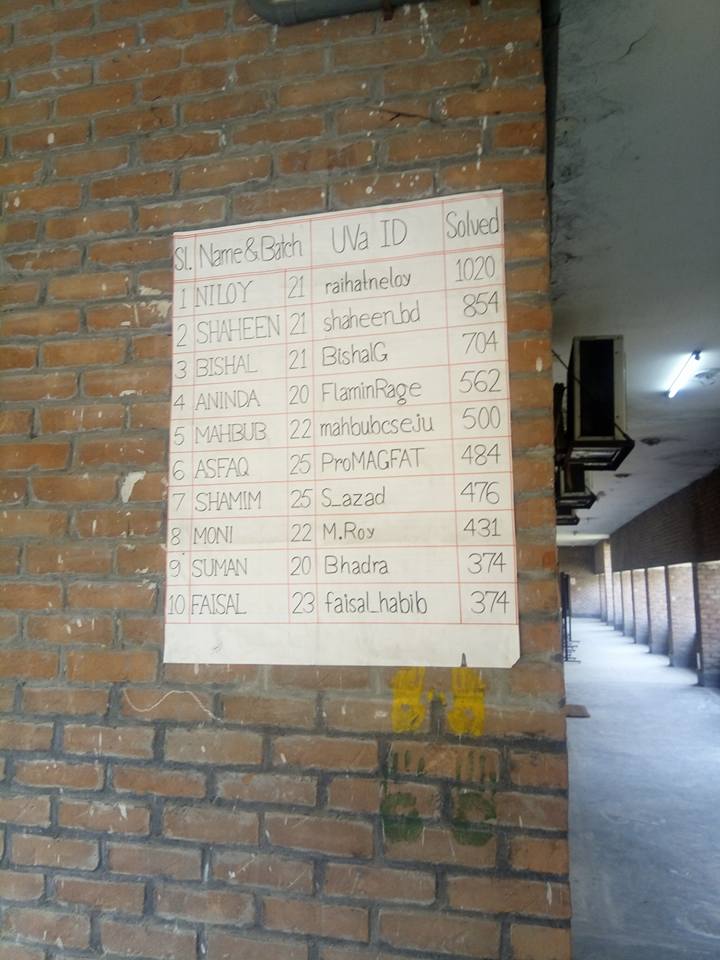 Sl. Name & Batch UVa ID Solved
1 NILOY 21 raihatneloy 1020
2 SHAHEEN 21 shaheen_bd 854
3 BISHAL 21 BishalG 704
4 ANINDA 20 FlaminRage 562
5 MAHBUB 22 mahbubcseju 500
6 ASFAQ 25 ProMAGFAT 484
7 SHAMIM 25 S_azad 476
8 MONI 22 M.Roy 431
9 SUMAN 20 Bhadra 374
10 FAISAL 23 faisal_habib 374